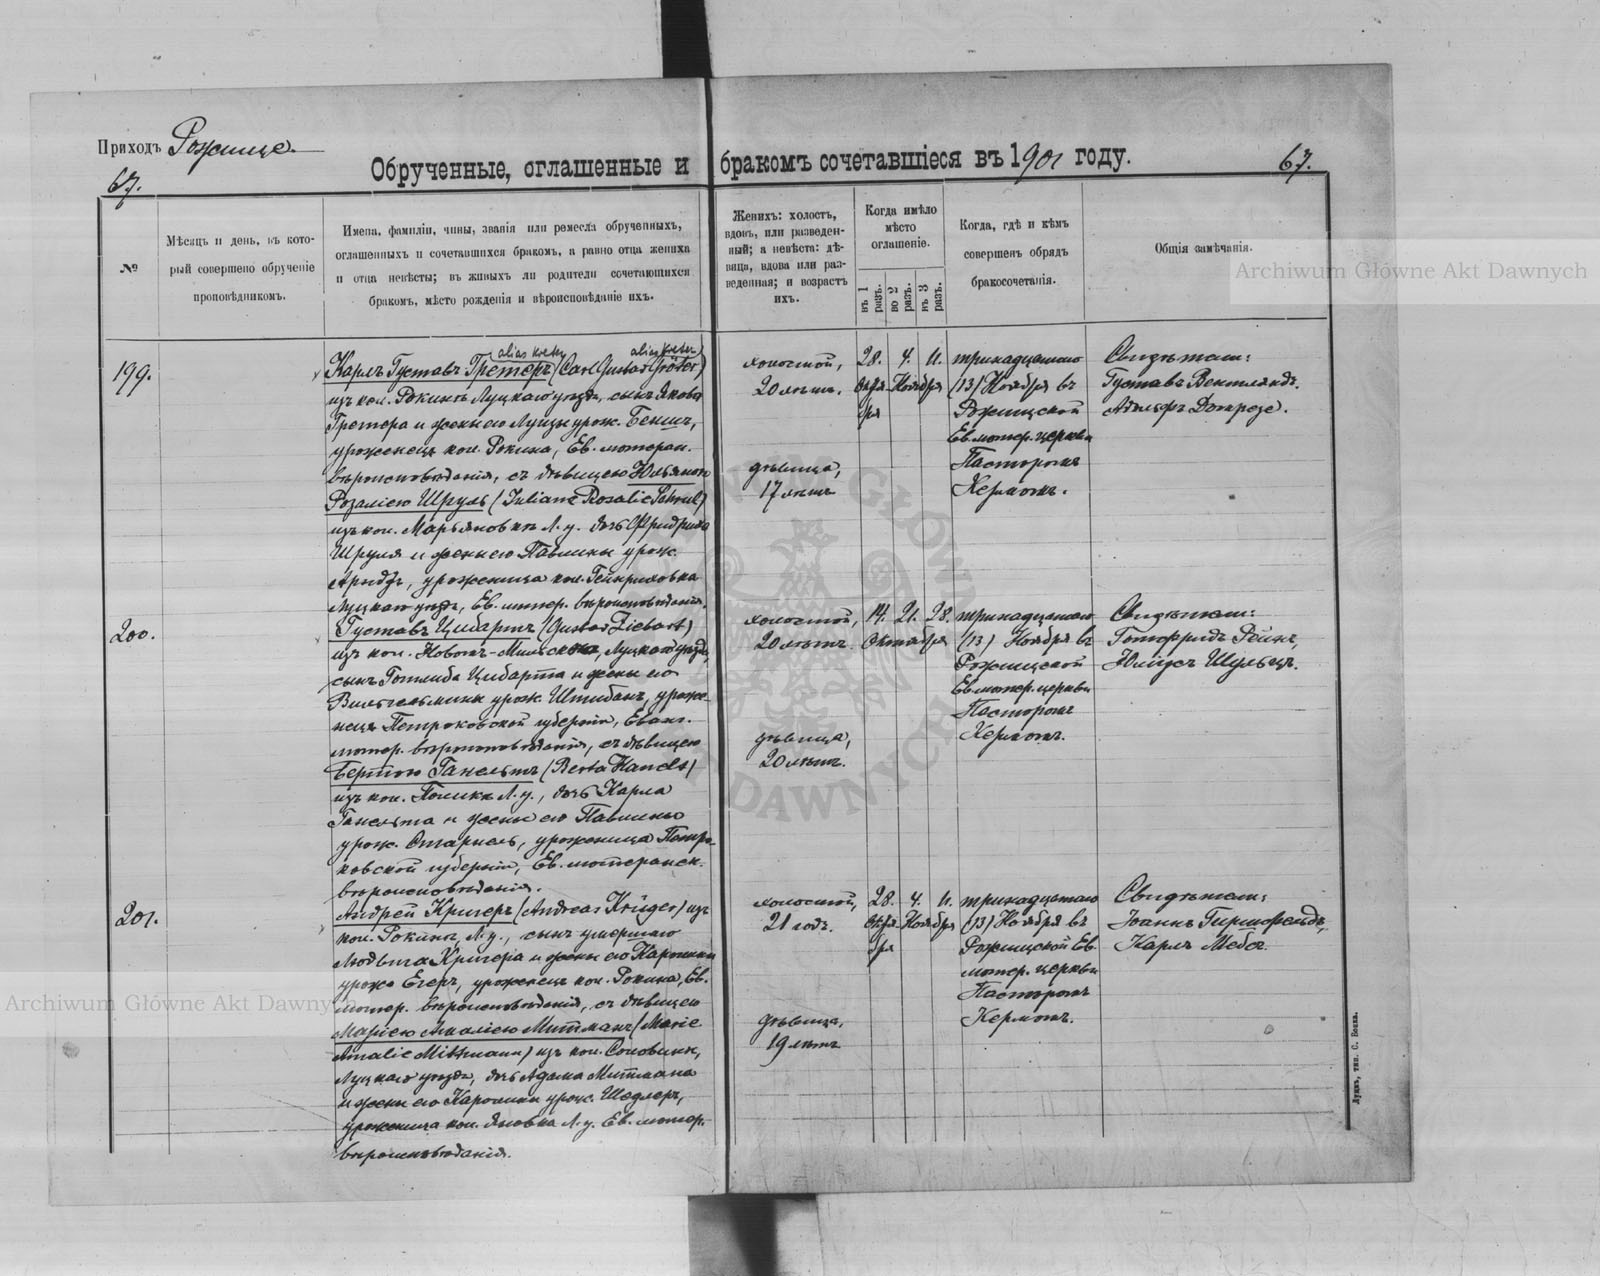 Приходъ Рожище.
Обрученные, оглашенные и бракомъ сочетавшіеся въ 1901 году.
67.
67.
№
Мѣсяцъ и день, въ кото-
рый совершено обрученіе
проповѣдникомъ.
Имена, фамиліи, чины, званія или ремесла обрученныхъ,
оглашенныхъ и сочетавшихся бракомъ, а равно отца жениха
и отца невѣсты; въ живыхъ ли родители сочетающихся
бракомъ, мѣсто рожденія и вѣроисповѣданіе ихъ.
Женихъ: холостъ,
вдовъ, или разведен-
ный; а невѣста: дѣ-
вица, вдова или раз-
веденная; и возрастъ
ихъ.
Когда имѣло
мѣсто
оглашеніе.
въ 1 разъ.
во 2 разъ.
въ 3 разъ.
Когда, гдѣ и кѣмъ
совершенъ обрядъ
бракосочетанія.
Общія замѣчанія.
199.
alias Kreter alias Kreter
Карлъ Густавъ Гретеръ (Carl Gustav Gröter)
изъ кол. Рокинь Луцкаго уѣзда, сынъ Якова
Гретера и жены его Луизы урож. Беншъ,
уроженецъ кол. Рокина, Ев. лютеран.
вѣроисповѣданія, съ дѣвицею Юльяною
Розаліею Шруль (Juliane Rosalie Schrul)
изъ кол. Марьяновки Л. у. дочь Фридриха
Шруля и жены его Павлины урож.
Арндтъ, уроженица кол. Гейнриховка
Луцкаго уѣзда, Ев. лютер. вѣроисповѣданія.
холостой,
20 лѣтъ.
дѣвица,
17 лѣтъ
28. 4. 11.
Октя- Ноября
бря
тринадцатаго
(13) Ноября въ
Рожищской
Ев. лютер. церкви
Пасторомъ
Кермомъ.
Свидѣтели:
Густавъ Вентляндъ.
Адольфъ Домрезе.
200.
Густавъ Цибартъ (Gustav Ziebart)
изъ кол. Новомъ-Мильска, Луцкаго уѣзда,
сынъ Готлиба Цибарта и жены его
Вильгельмины урож. Штибанъ, уроже-
нецъ Петроковской губерніи, Еванг.
лютер. вѣроисповѣданія, съ дѣвицею
Бертою Ганельтъ (Berta Hanelt)
изъ кол. Топилки Л. у., дочь Карла
Ганельта и жены его Павлины
урож. Отарнель, уроженица Петро-
ковской губерніи, Ев. лютеранск.
вѣроисповѣданія.
холостой,
20 лѣтъ.
дѣвица,
20 лѣтъ.
14. 21. 28.
Октября
тринадцатаго
(13) Ноября въ
Рожищской
Ев. лютер. церкви
Пасторомъ
Кермомъ.
Свидѣтели:
Готфридъ Рейнъ,
Юліусъ Шульцъ.
201.
Андрей Кригеръ (Andreas Krüger) изъ
кол. Рокина, Л. у., сынъ умершаго
Людвига Кригера и жены его Каролины
урож. Егеръ, уроженецъ кол. Рокина, Ев.
лютер. вѣроисповѣданія, съ дѣвицею
Маріею Амаліею Митманъ (Marie
Amalie Mittmann) изъ кол. Словинъ,
Луцкаго уѣзда, дочь Адама Митмана
и жены его Каролины урож. Шедлеръ,
уроженица кол. Яновка Л. у. Ев. лютер.
вѣроисповѣданія.
холостой,
21 годъ.
дѣвица,
19 лѣтъ
28. 4. 11.
Октя- Ноября
бря
тринадцатаго
(13) Ноября въ
Рожищской Ев.
лютер. церкви
Пасторомъ
Кермомъ.
Свидѣтели:
Іоаннъ Гиршфельдъ,
Карлъ Мебсъ.
Луцкъ, тип. С. Бонка.
Archiwum Główne Akt Dawnych
Archiwum Główne Akt Dawnych